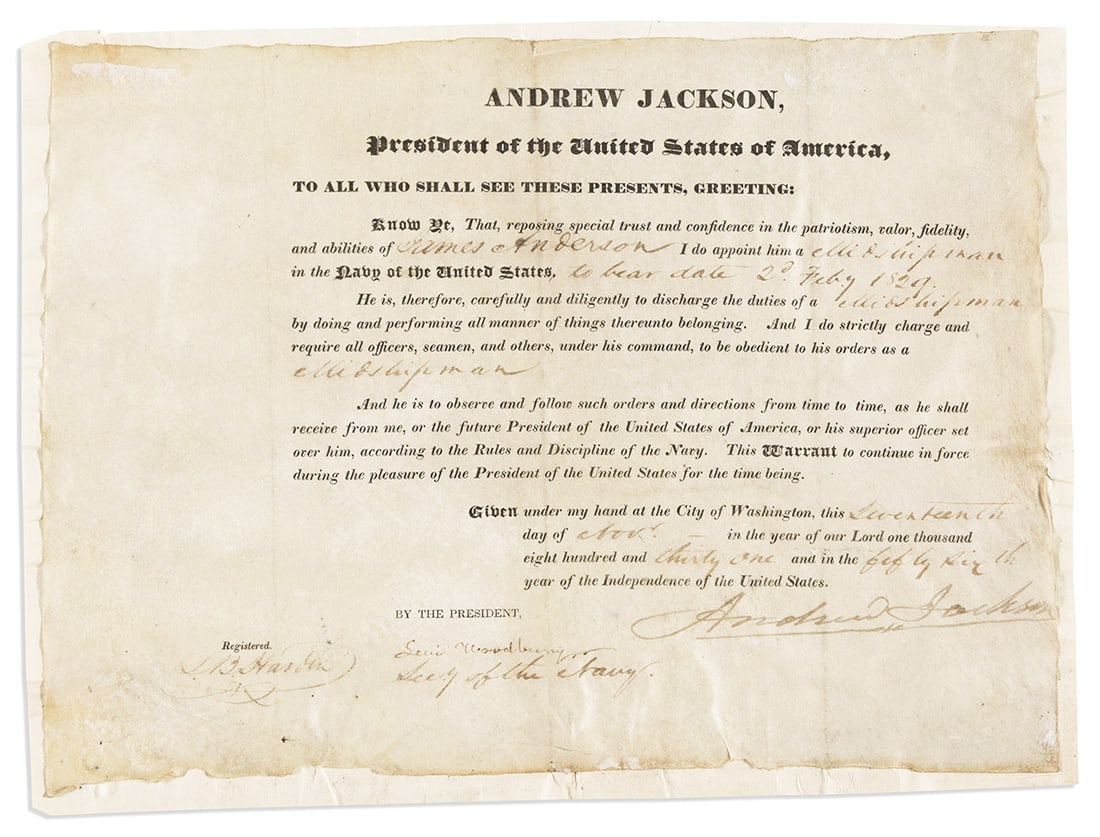 ANDREW JACKSON,
President of the United States of America,
TO ALL WHO SHALL SEE THESE PRESENTS, GREETING:
Know Ye, That, reposing special trust and confidence in the patriotism, valor, fidelity,
and abilities of James Anderson I do appoint him a Midshipman
in the Navy of the United States, to bear date 2d Feby 1829.
He is, therefore, carefully and diligently to discharge the duties of a Midshipman
by doing and performing all manner of things thereunto belonging. And I do strictly charge and
require all officers, seamen, and others, under his command, to be obedient to his orders as a
Midshipman
And he is to observe and follow such orders and directions from time to time, as he shall
receive from me, or the future President of the United States of America, or his superior officer set
over him, according to the Rules and Discipline of the Navy. This Warrant to continue in force
during the pleasure of the President of the United States for the time being.
Given under my hand at the City of Washington, this Seventeenth
day of Novr. – in the year of our Lord one thousand
eight hundred and thirty one and in the fifty sixth
year of the Independence of the United States.
Andrew Jackson
BY THE PRESIDENT,
Registered.
Levi Woodbury
Secy of the Navy.